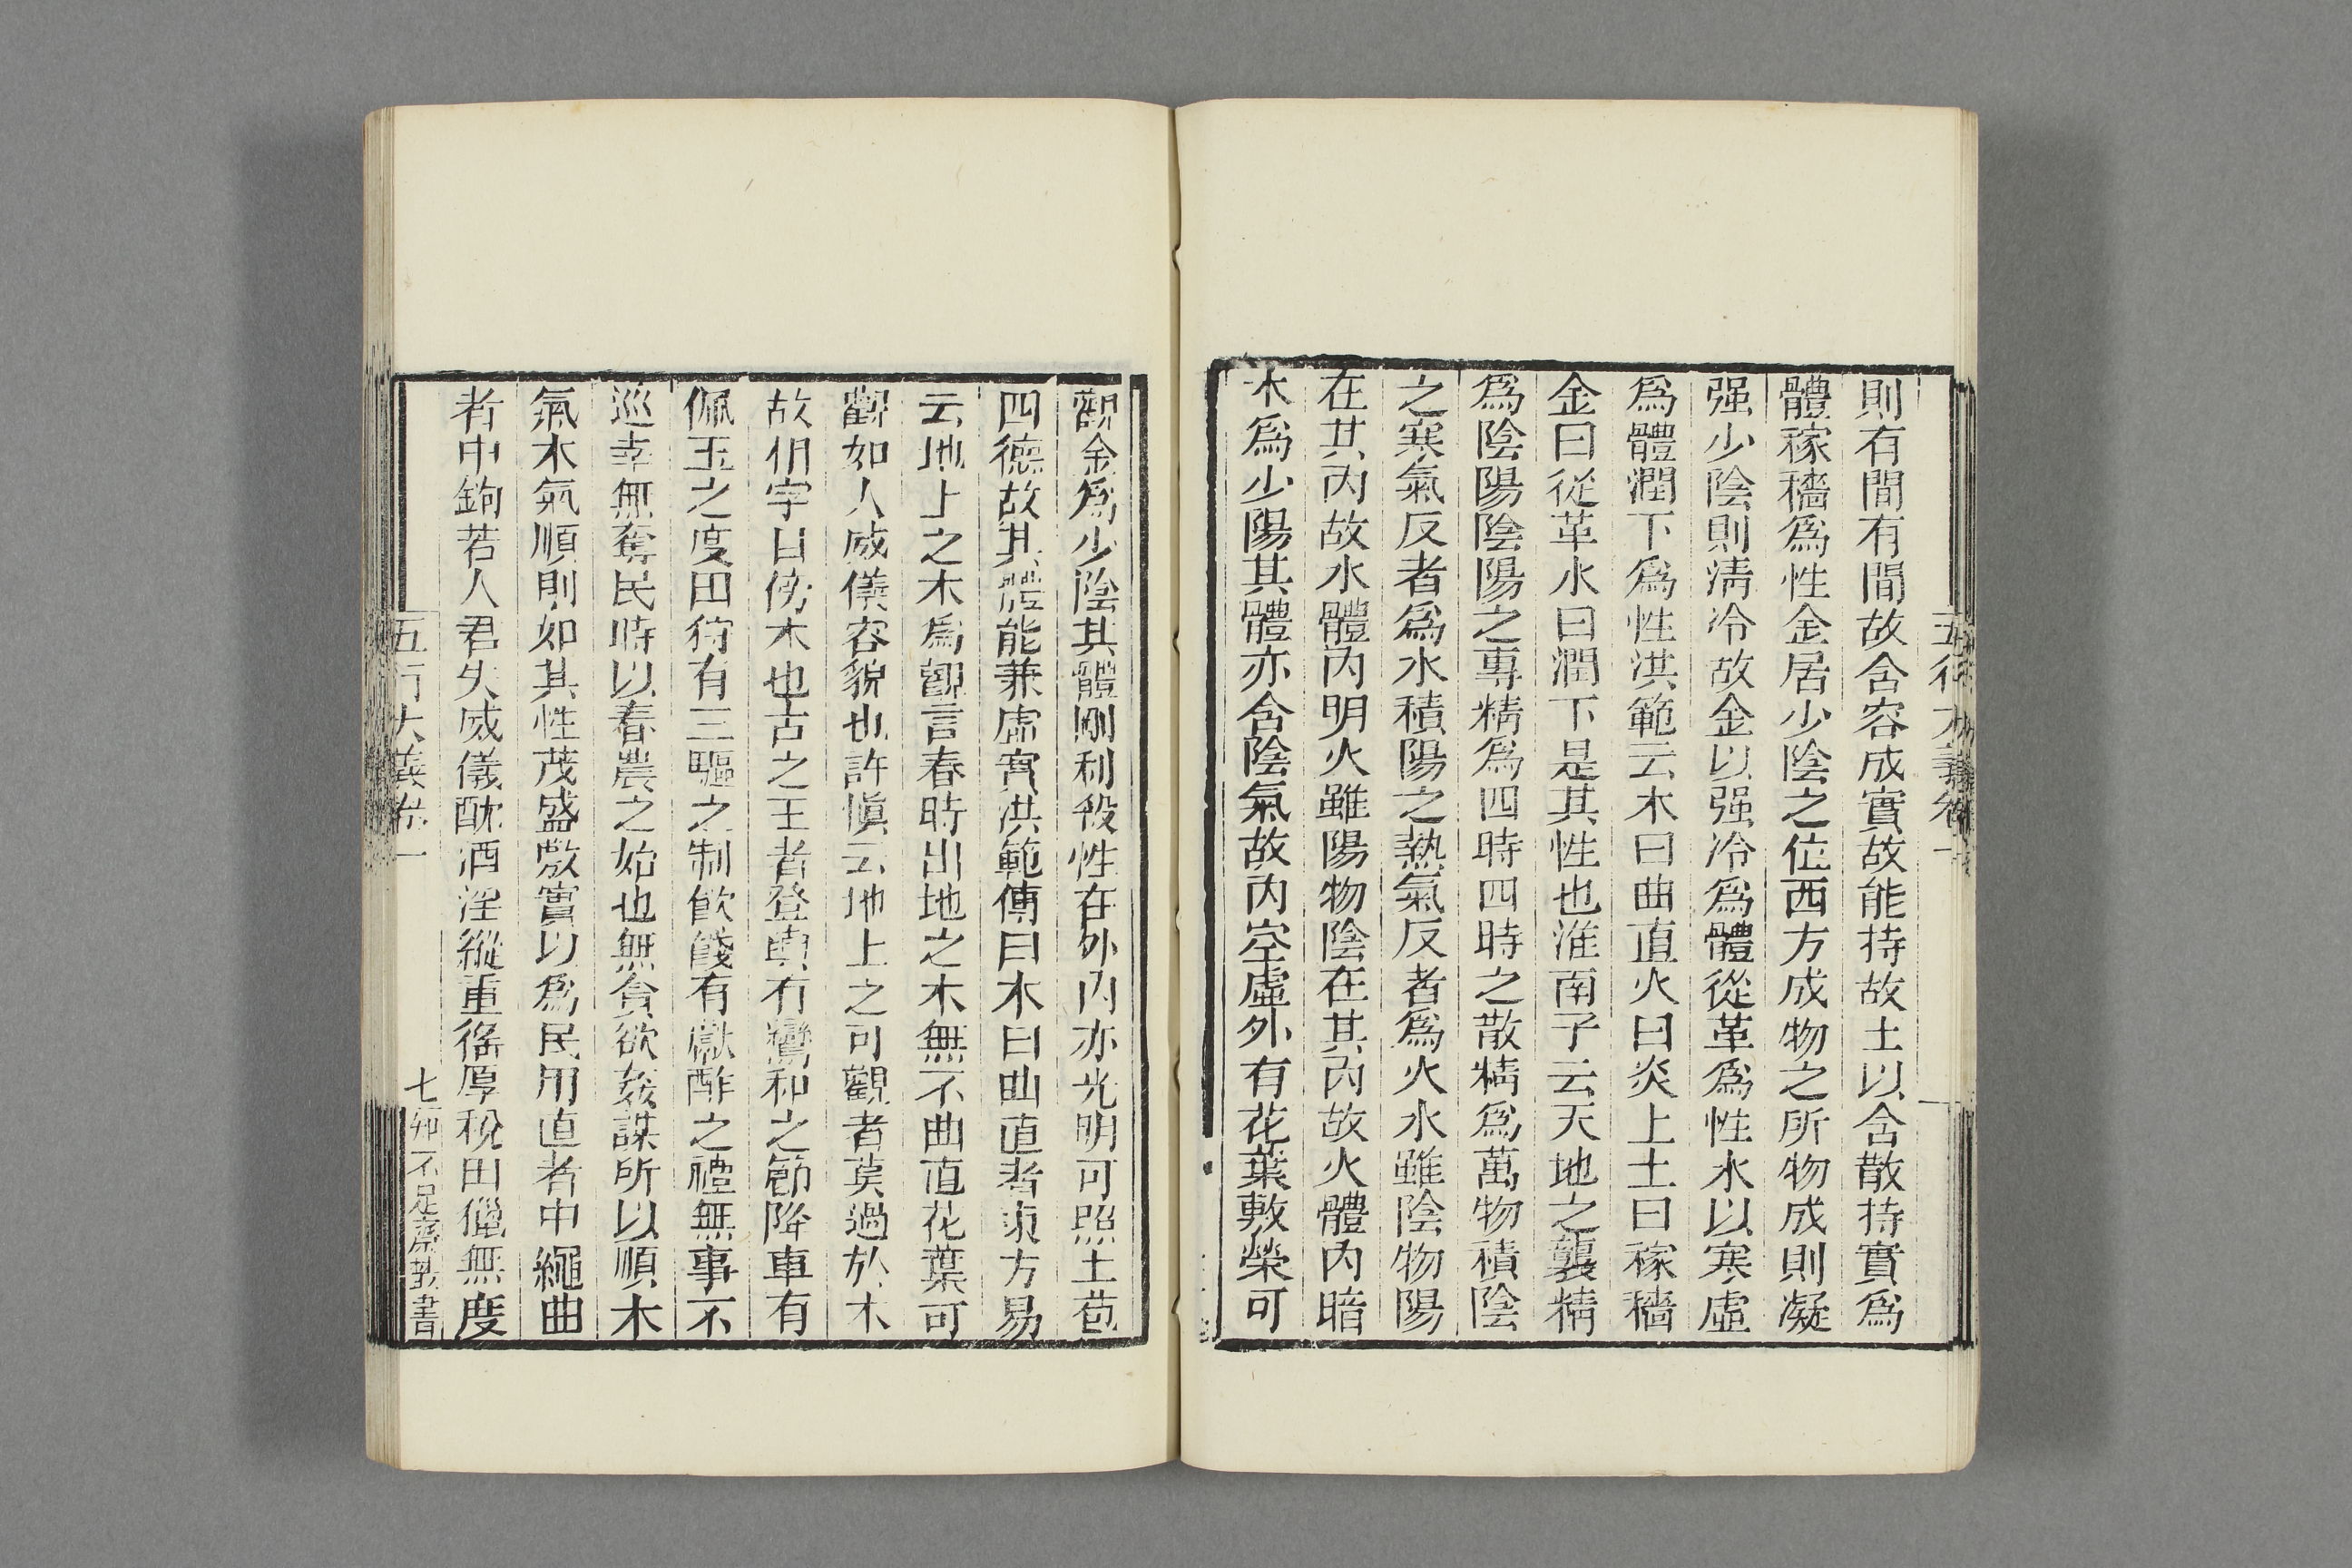 則有間有間故含容成實故能持故土以含散持實爲
體稼穡爲性金居少陰之位西方成物之所物成則凝
强少陰則淸冷故金以强冷爲體從革爲性水以寒虛
爲體潤下爲性洪範云木曰曲直火曰炎上土曰稼穡
金曰從革水曰潤下是其性也淮南子云天地之襲精
爲陰陽陰陽之專精爲四時四時之散精爲萬物積陰
之寒氣反者爲水積陽之熱氣反者爲火水雖陰物陽
在其內故水體內明火雖陽物陰在其內故火體內暗
木爲少陽其體亦含陰氣故內空虛外有花葉敷榮可
觀金爲少陰其體剛利殺性在外內亦光明可照土苞
四德故其體能兼虛實洪範傳曰木曰曲直者東方易
云地上之木爲觀言春時出地之木無不曲直花葉可
觀如人威儀容貌也許愼云地上之可觀者莫過於木
故相字目傍木也古之王者登輿有鸞和之節降車有
佩玉之度田狩有三驅之制飮餞有獻酢之禮無事不
巡幸無奪民時以春農之始也無貪欲姦謀所以順木
氣木氣順則如其性茂盛敷實以爲民用直者中繩曲
者中鉤若人君失威儀酖酒淫縱重徭厚稅田獵無度
五行大義卷一
七
知不足齋叢書